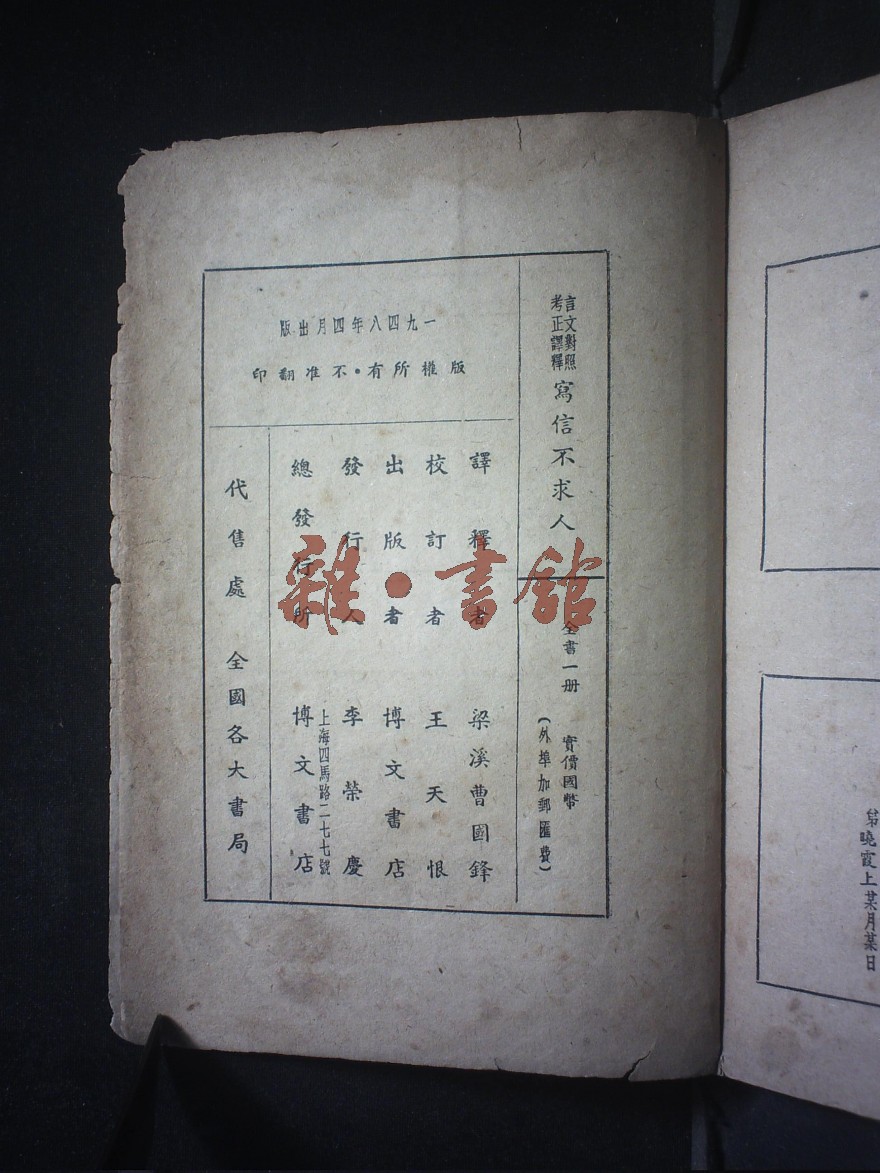 言文對照
考正譯釋
寫信不求人
全書一册 實價國幣
(外埠加郵匯費)
一九四八年四月出版
版權所有·不准翻印
譯釋者 梁溪曹國鋒
校訂者 王天恨
出版者 博文書店
發行人 李榮慶
上海四馬路二七七號
總發行所 博文書店
代售處 全國各大書局
雜·書館
弟曉霞上某月某日